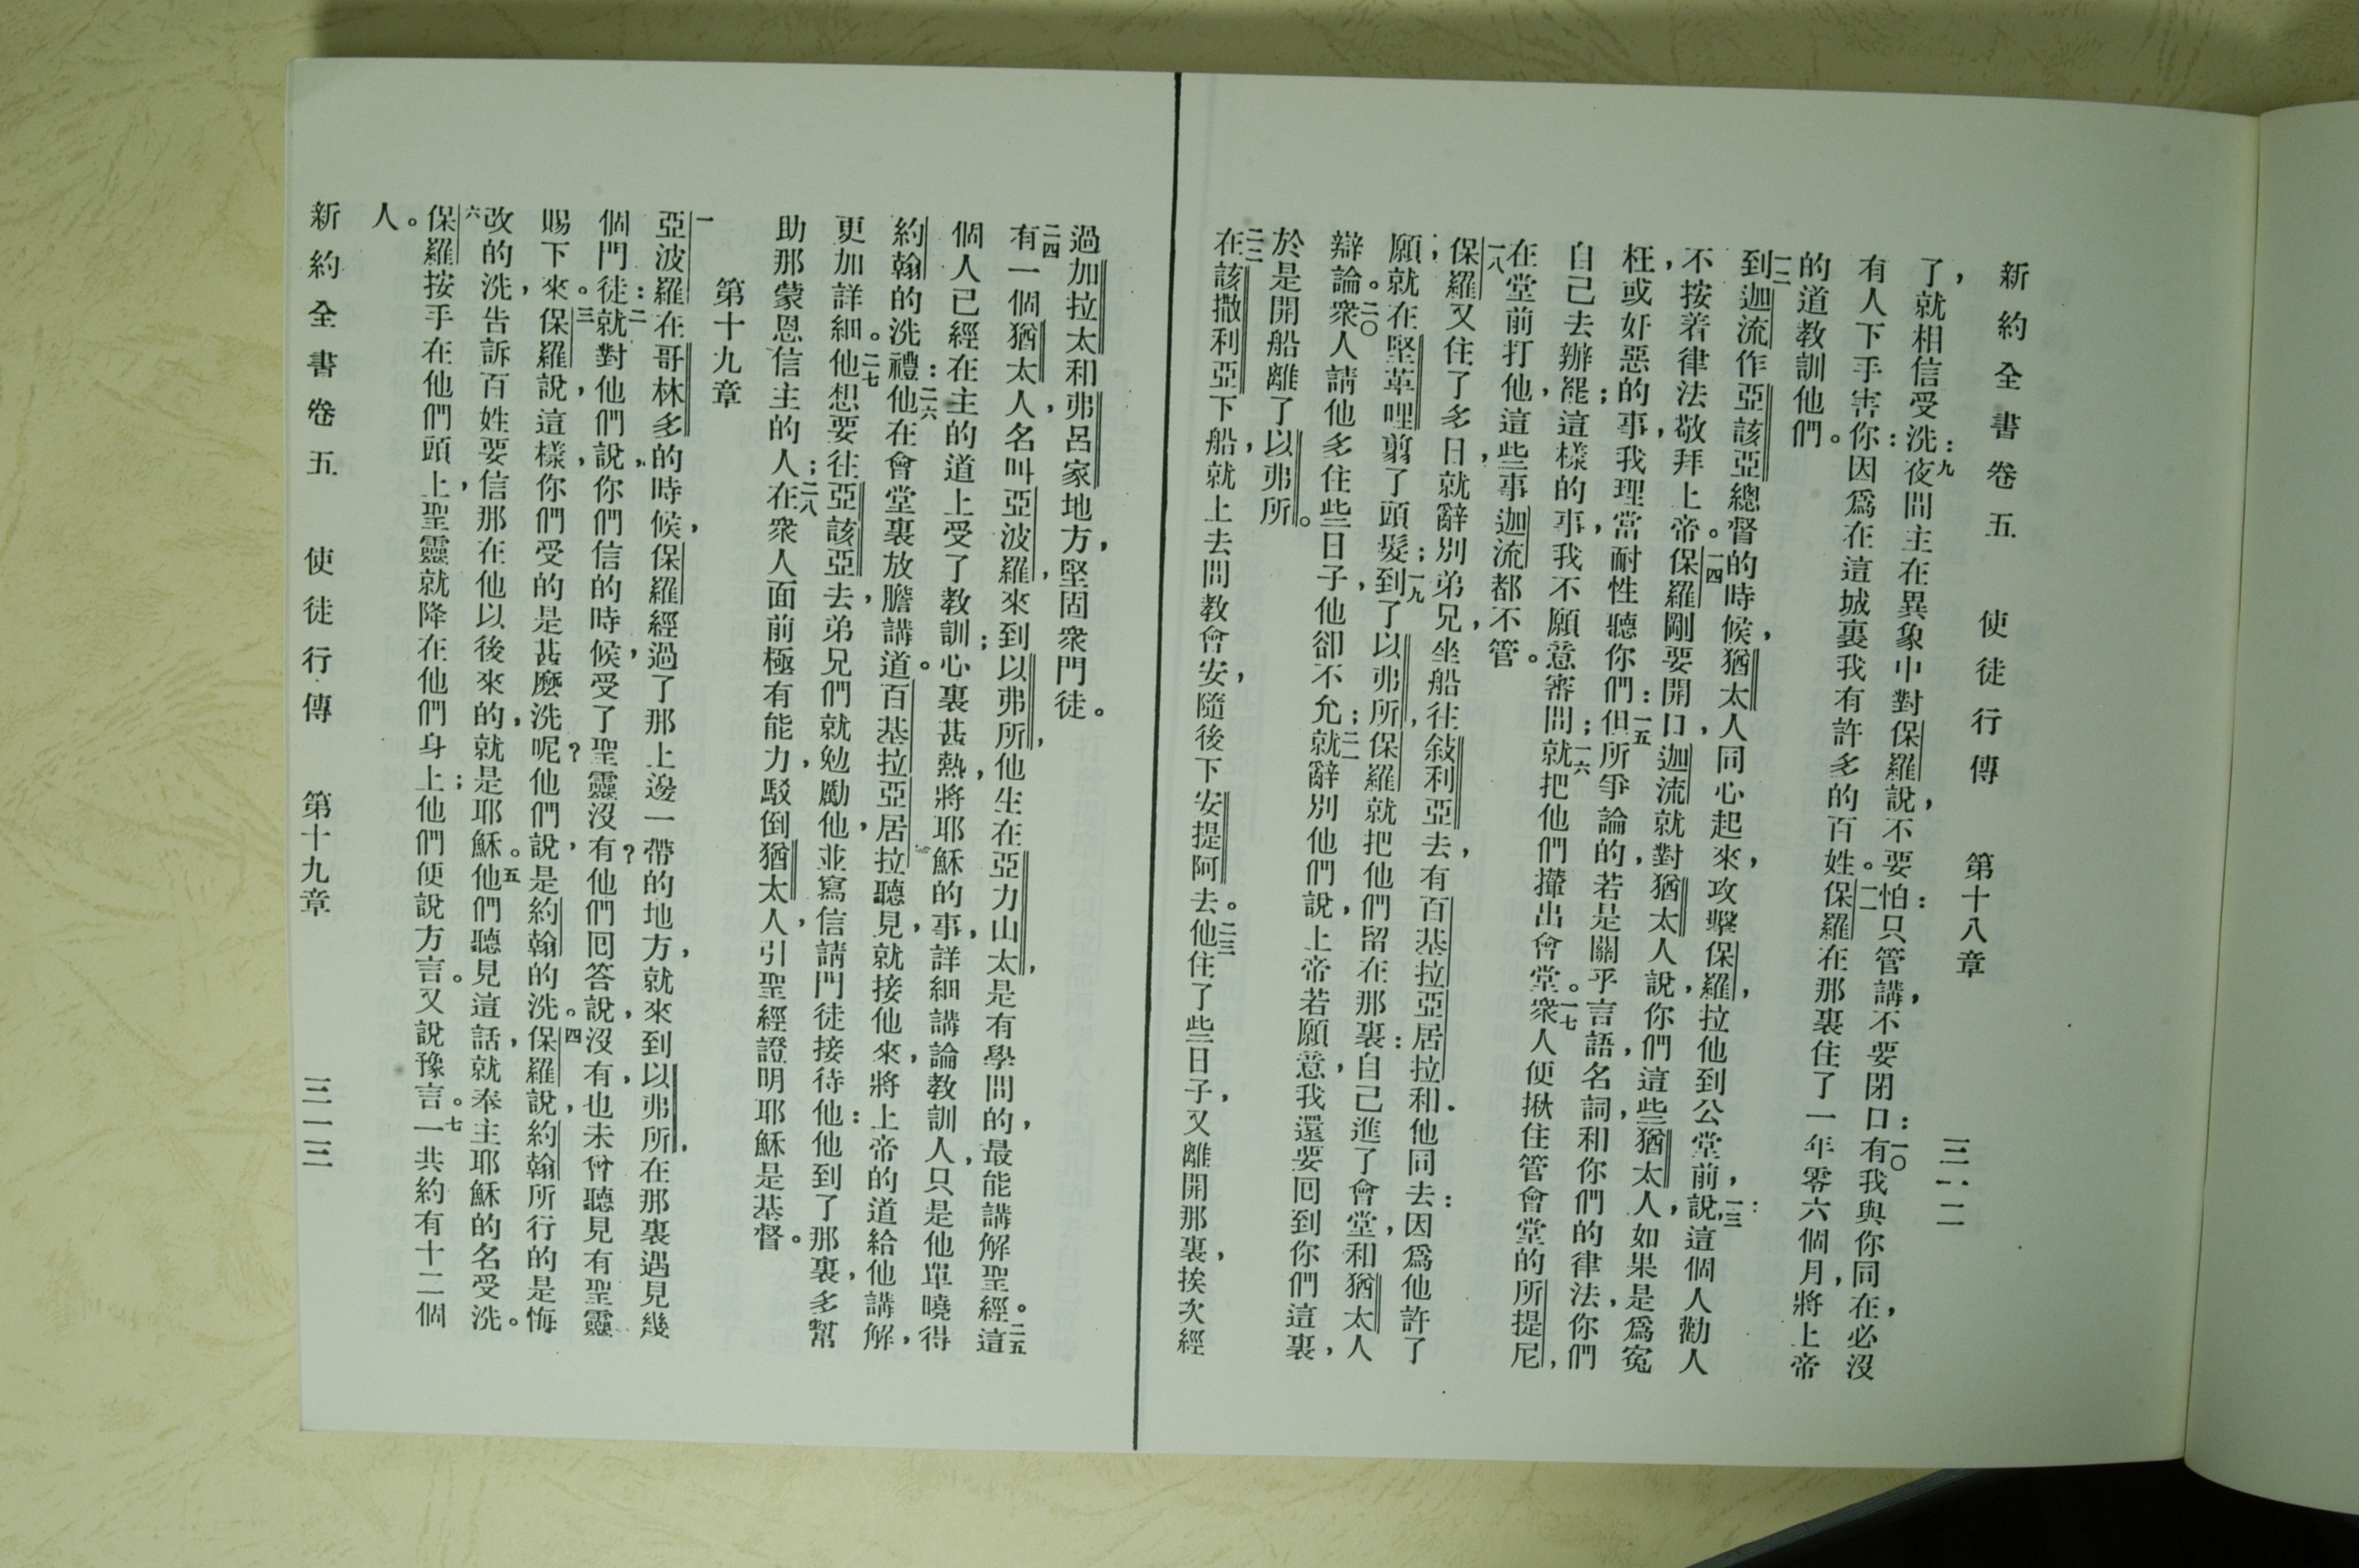 新約全書卷五 使徒行傳 第十八章 三一二
了，就相信受洗：九夜間主在異象中對保羅說，不要怕：只管講，不要閉口：一〇有我與你同在，必沒
有人下手害你因爲在這城裏我有許多的百姓。一一保羅在那裏住了一年零六個月，將上帝
的道教訓他們。
一二到迦流作亞該亞總督的時候，猶太人同心起來，攻擊保羅，拉他到公堂前，一三說，這個人勸人
不按着律法敬拜上帝。一四保羅剛要開口，迦流就對猶太人說，你們這些猶太人，如果是爲寃
枉，或奸惡的事，我理當耐性聽你們：一五但所爭論的，若是關乎言語，名詞，和你們的律法，你們
自己去辦罷；這樣的事，我不願意審問；一六就把他們攆出會堂。一七衆人便揪住管會堂的所提尼，
在堂前打他，這些事迦流都不管。
一八保羅又住了多日，就辭別弟兄，坐船往敍利亞去，有百基拉亞居拉和他同去：因爲他許了
願；就在堅革哩剪了頭髮；一九到了以弗所，保羅就把他們留在那裏：自己進了會堂，和猶太人
辯論。二〇衆人請他多住些日子，他卻不允；二一就辭別他們說，上帝若願意，我還要囘到你們這裏，
於是開船離了以弗所。
二二在該撒利亞下船，就上去問教會安，隨後下安提阿去。二三他住了些日子，又離開那裏，挨次經
過加拉太和弗呂家地方，堅固衆門徒。
二四有一個猶太人，名叫亞波羅，來到以弗所，他生在亞力山太，是有學問的，最能講解聖經。二五這
個人已經在主的道上受了教訓；心裏甚熱，將耶穌的事，詳細講論教訓人，只是他單曉得
約翰的洗禮：二六他在會堂裏放膽講道。百基拉亞居拉聽見，就接他來，將上帝的道給他講解，
更加詳細。二七他想要往亞該亞去，弟兄們就勉勵他，並寫信請門徒接待他：他到了那裏，多幫
助那蒙恩信主的人；二八在衆人面前極有能力，駁倒猶太人，引聖經證明耶穌是基督。
第十九章
一亞波羅在哥林多的時候，保羅經過了那上邊一帶的地方，就來到以弗所，在那裏遇見幾
個門徒：二就對他們說，你們信的時候，受了聖靈沒有？他們囘答說，沒有，也未曾聽見有聖靈
賜下來。三保羅說，這樣，你們受的是甚麼洗呢？他們說，是約翰的洗。四保羅說，約翰所行的是悔
改的洗，告訴百姓要信那在他以後來的，就是耶穌。五他們聽見這話，就奉主耶穌的名受洗。
六保羅按手在他們頭上，聖靈就降在他們身上；他們便說方言。又說豫言。七一共約有十二個
人。
新約全書卷五 使徒行傳 第十九章 三一三